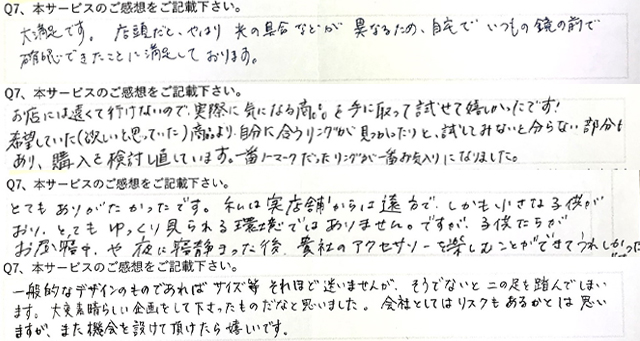 Q7、本サービスのご感想をご記載下さい。
大満足です。店頭だと、やはり光の具合などが異なるため、自宅でいつもの鏡の前で
確認できたことに満足しております。
Q7、本サービスのご感想をご記載下さい。
お店には遠くて行けないので、実際に気になる商品を手に取って試せて嬉しかったです!
希望していた(欲しいと思っていた)商品より、自分に合うリングが見つかったりと、試してみないと分らない部分も
あり、購入を検討し直しています。一番ノーマークだったリングが一番お気入りになりました。
Q7、本サービスのご感想をご記載下さい。
とてもありがたかったです。私は実店舗からは遠方で、しかも小さな子供が
おり、とてもゆっくり見られる環境ではありません。ですが、子供たちが
お昼寝中や夜に寝静まった後、貴社のアクセサリーを楽しむことができてうれしかった
Q7、本サービスのご感想をご記載下さい。
一般的なデザインのものであればサイズ等それほど迷いませんが、そうでないと二の足を踏んでしまい
ます。大変素晴らしい企画をして下さったものだなと思いました。会社としてはリスクもあるかとは思い
ますが、また機会を設けて頂けたら嬉しいです。